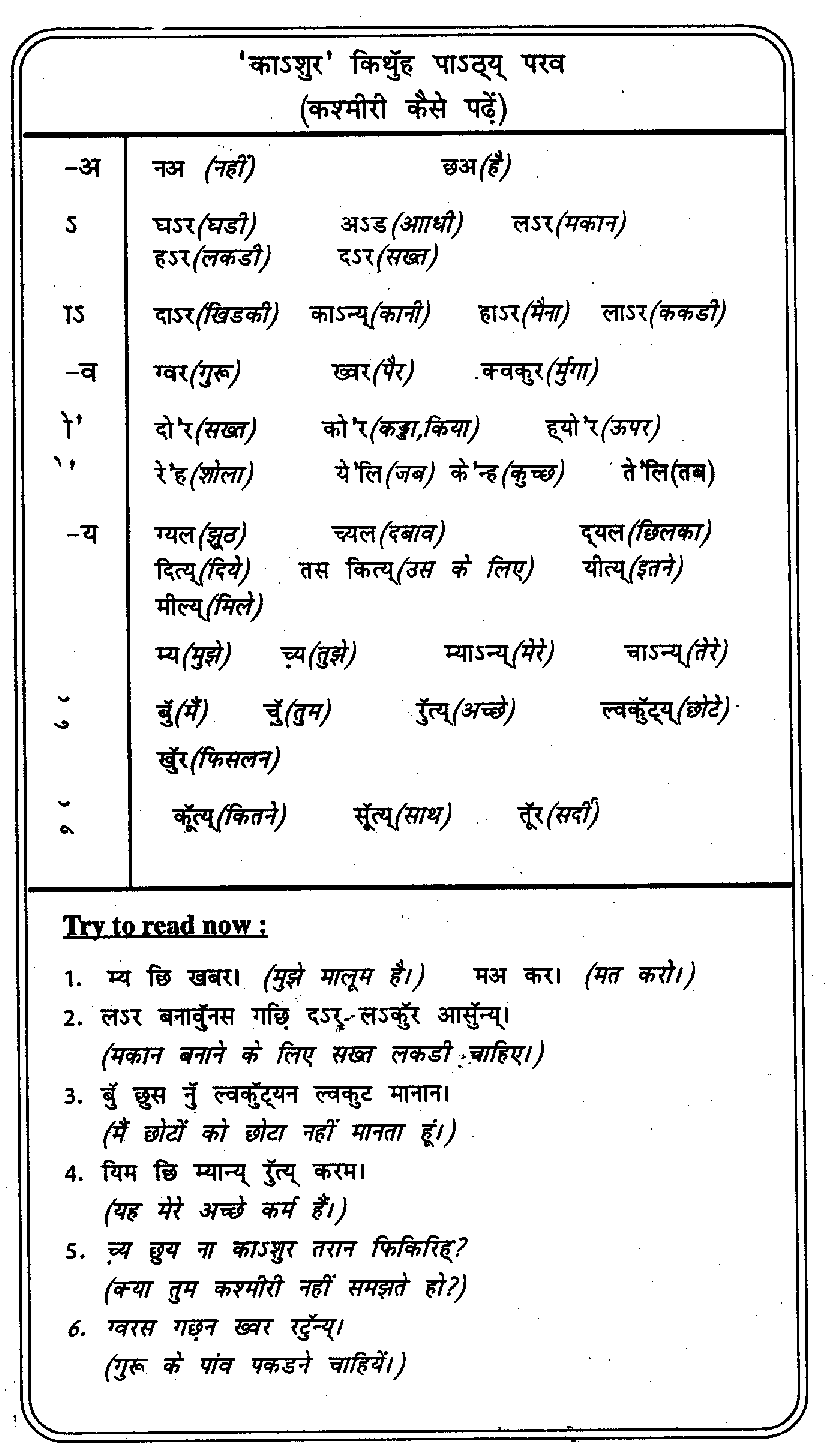 'काऽशुर' किथुॅह पाऽठ्य् परव
(कश्मीरी कैसे पढ़ें)
–अ नअ (नहीं) छअ(है)
ऽ घऽर(घडी) अऽड(आाधी) लऽर(मकान)
हऽर(लकडी) दऽर(सख्त)
ाऽ दाऽर(खिडकी) काऽन्य्(कानी) हाऽर(मैना) लाऽर(ककडी)
–व ग्वर(गुरू) ख्वर(पैर) क्वकुर(र्मुगा)
ो' दो'र(सख्त) को'र(कड्डा,किया) ह्यो'र(ऊपर)
े' रे'ह(शोला) ये'लि(जब) के'न्ह(कुच्छ) ते'लि(तब)
–य ग्यल(झूठ) च्यल(दबाव) द्यल(छिलका)
दित्य्(दिये) तस कित्य्(उस के लिए) यीत्य्(इतने)
मील्य्(मिले)
म्य(मुझे) च़्य(तुझे) म्याऽन्य्(मेरे) चाऽन्य्(तेरे)
ुॅ बुॅ(मैं) चुॅ(तुम) रुॅत्य्(अच्छे) ल्वकुॅट्य्(छोटे)
खुॅर(फिसलन)
ूॅ कूॅत्य्(कितने) सूॅत्य्(साथ) तूॅर(सर्दी)
Try to read now :
1. म्य छि खबर। (मुझे मालूम है।) मअ कर। (मत करो।)
2. लऽर बनावुॅनस गछ़ि दऽर् लऽकुॅर आसुॅन्य्।
(मकान बनाने के लिए सख्त लकडी चाहिए।)
3. बुॅ छुस नुॅ ल्वकुॅट्यन ल्वकुट मानान।
(मैं छोटों को छोटा नहीं मानता हूं।)
4. यिम छि म्यान्य् रुॅत्य् करम।
(यह मेरे अच्छे कर्म हैं।)
5. च़्य छुय ना काऽशुर तरान फिकिरिह्?
(क्या तुम कश्मीरी नहीं समझते हो?)
6. ग्वरस गछ़न ख्वर रटुॅन्य्।
(गुरू के पांव पकडने चाहियें।)